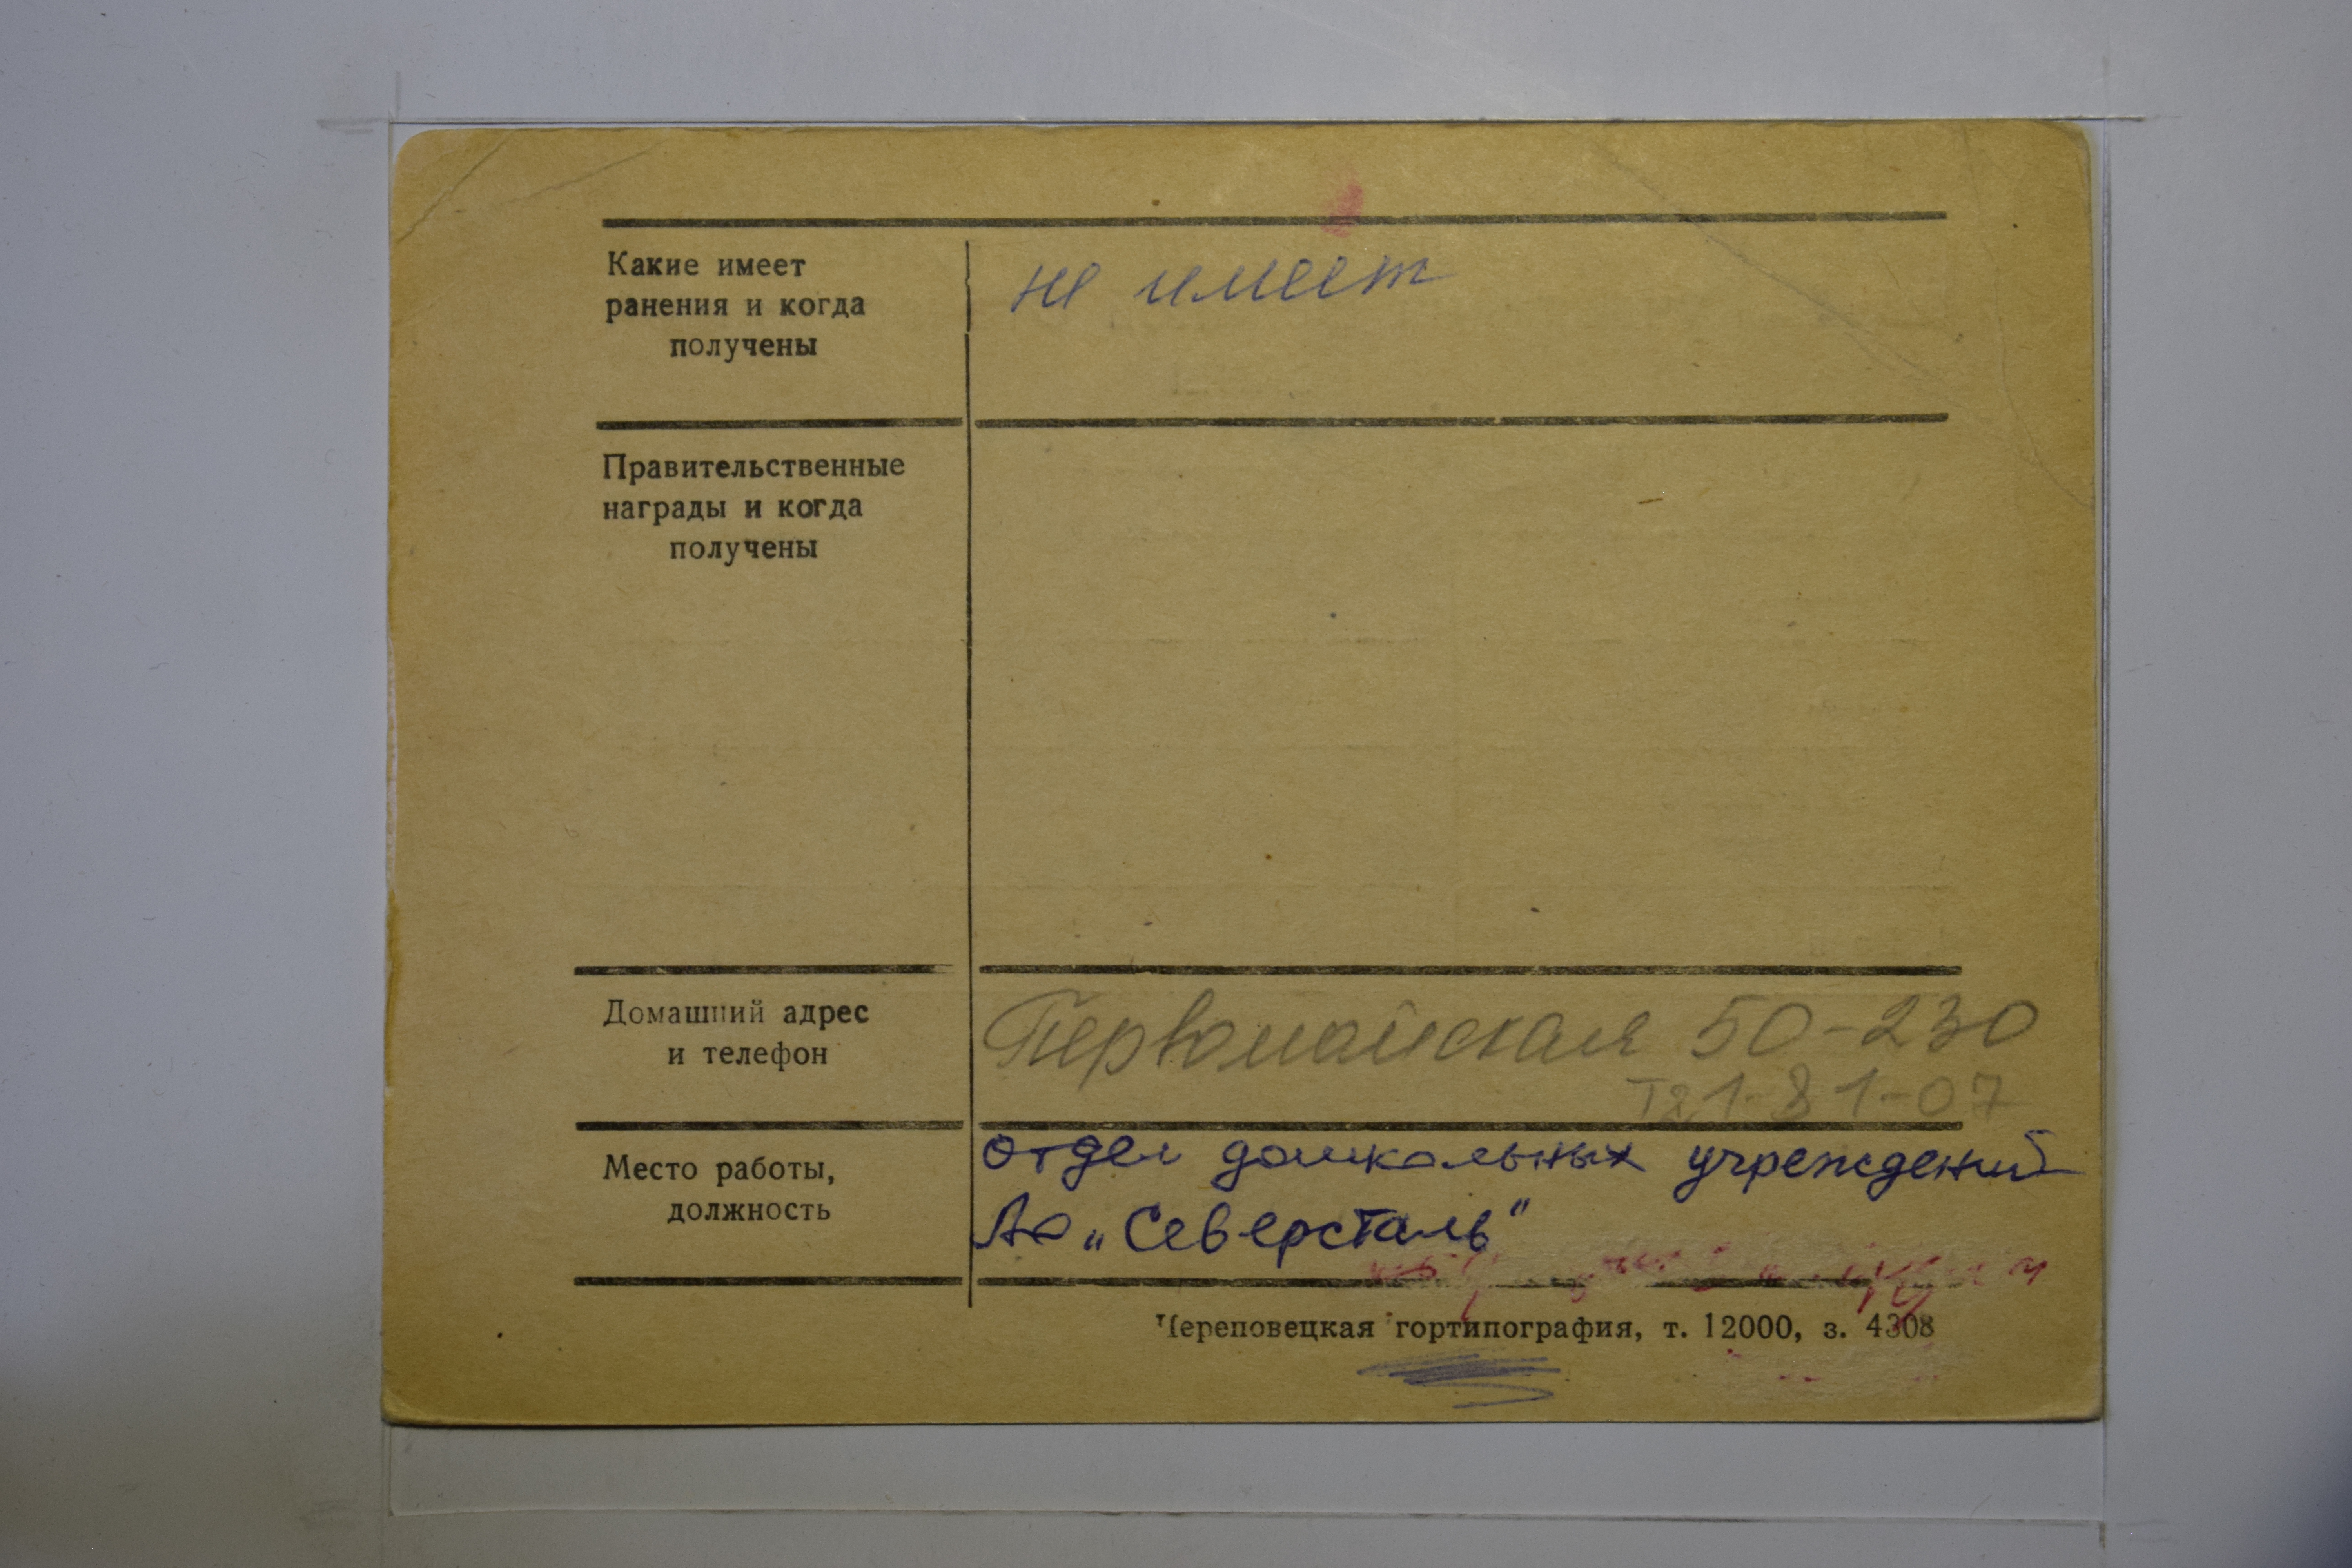 Какие имеет
ранения и когда
получены
не имеет
Правительственные
награды и когда
получены
Домашний адрес
и телефон
Первомайская 50-230
т 21-81-07
Место работы,
должность
отдел дошкольных учреждений
АО „Северсталь"
Череповецкая гортипография, т. 12000, з. 4308